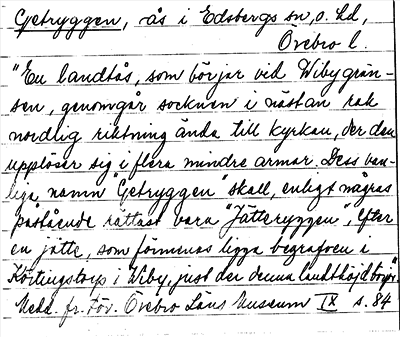 Getryggen, ås i Edsbergs sn, o. hd,
Örebro l.
"En landtås, som börjar vid Wibygrän-
sen, genomgår socknen i nästan rak
nordlig riktning ända till kyrkan, der den
upplöser sig i flera mindre armar. Dess van-
liga namn "Getryggen" skall, enligt någras
påstående rättast vara "Jätteryggen", efter
en jätte, som förmenas ligga begrafven i
Körtingstorp i Wiby, just der denna landthöjd börjar."
Medd. fr. För. Örebro Läns Museum IX s. 84